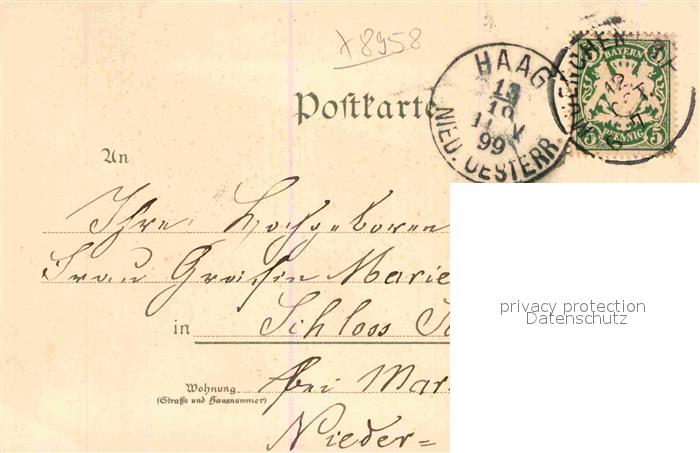 x8958
BAYERN
5 5
PFENNIG
HAAG
13
10
11 V
99
NIED. OESTERR.
MUENCHEN
Postkarte
An
Ihre Hochgeboren
Frau Gräfin Marie
in Schloss
Wohnung
(Straße und Hausnummer)
bei Mar
Nieder=
privacy protection
Datenschutz